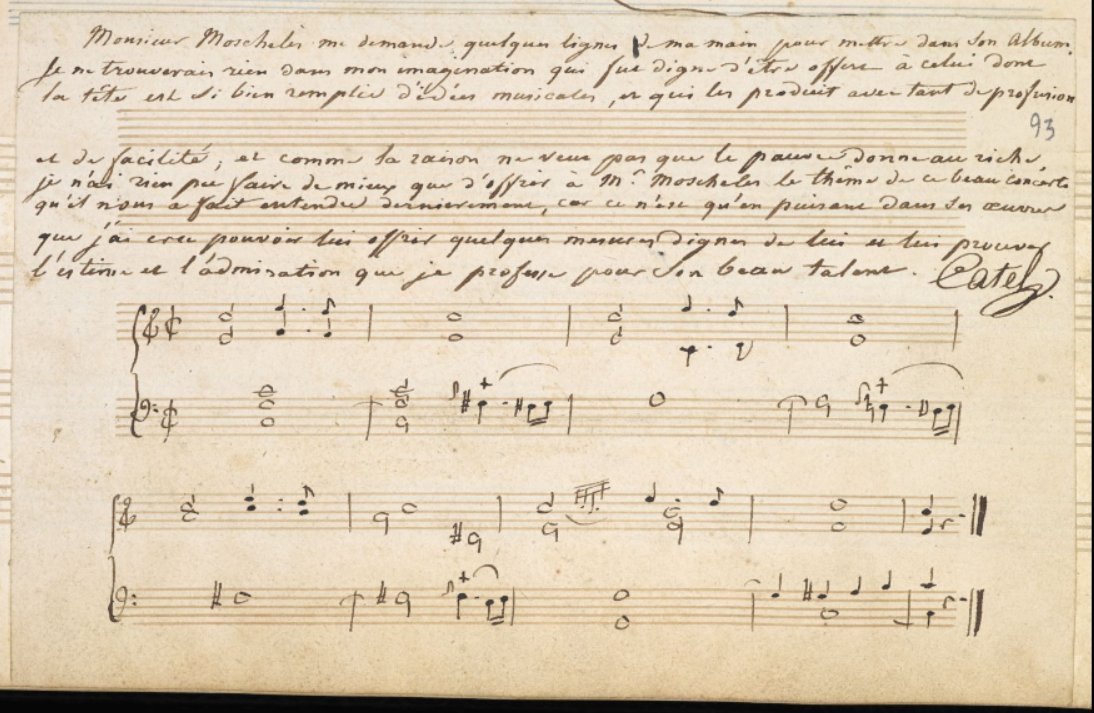 Monsieur Moscheles me demande quelques lignes de ma main pour mettre dans son Album.
Je ne trouverais rien dans mon imagination qui fut digne d'être offert à celui dont
la tête est si bien remplie d'idées musicales, et qui les produit avec tant de profusion
93
et de facilité; et comme la raison ne veut pas que le pauvre donne au riche
je n'ai rien pu faire de mieux que d'offrir à Mr. Moscheles le thême de ce beau concerto
qu'il nous a fait entendre dernierement, car ce n'est qu'en puisant dans ses œuvres
que j'ai cru pouvoir lui offrir quelques mesures dignes de lui et lui prouver
l'estime et l'admiration que je professe pour son beau talent. Catel.